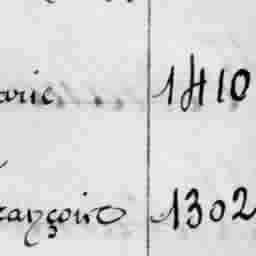 arie... 1410
rançois 1302